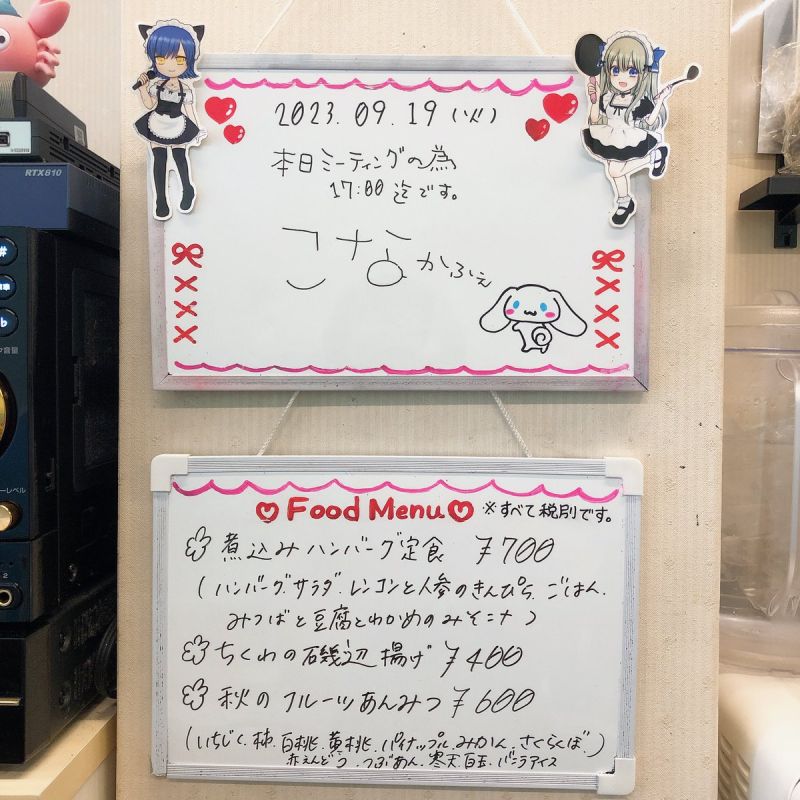 2023.09.19(火)
本日ミーティングの為
17:00迄です。
こなかふぇ
Food Menu ※すべて税別です。
煮込みハンバーグ定食 ¥700
(ハンバーグ.サラダ.レンコンと人参のきんぴら.ごはん.
みつばと豆腐とわかめのみそ汁)
ちくわの磯辺揚げ ¥400
秋のフルーツあんみつ ¥600
(いちじく.柿.白桃.黄桃.パイナップル.みかん.さくらんぼ.)
赤えんどう.つぶあん.寒天.白玉.バニラアイス
RTX810
#
♭
ク音量
ーレベル
2